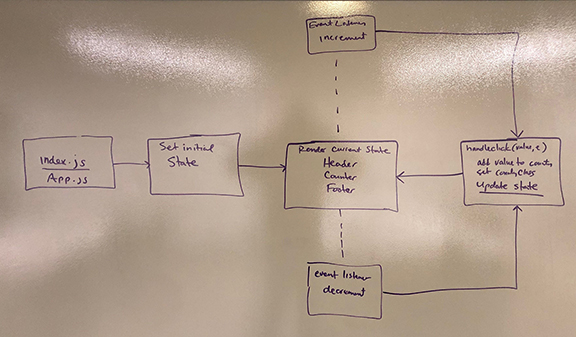 Event Listener
increment
index.js
App.js
Set initial
State
Render Current State
Header
Counter
Footer
handleclick(value, e)
add value to count,
set count, class
Update state
event listener
decrement